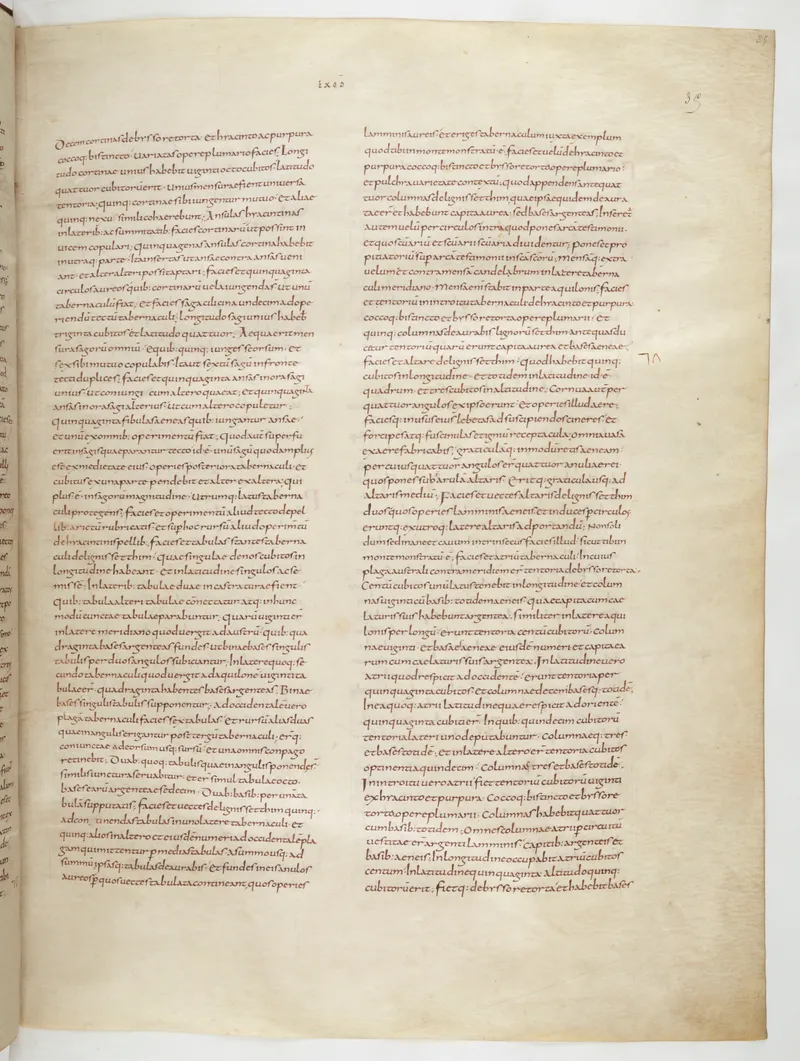 EXOD
39
Decem cortinas de bysso retorta et hyacinto ac purpura
coccoq; bis tincto uariatas opere plumario facies. Longi
tudo cortinae unius habebit uiginti octo cubitos. Latitudo
quattuor cubitorū erit. Unius mensurae fient uniuersa
tentoria. quinq; cortinae sibi iungentur mutuo et aliae
quinq; nexu simili coherebunt. Ansulas hyacintinas
in laterib; ac summitatib; facies cortinarū ut possint in
uicem copulari. quinquagenas ansulas cortina habebit
in utraq; parte. Ita insertas ut ansa contra ansā ueni
ant et altera alteri possit aptari. facies et quinquaginta
circulos aureos quib; cortinarū uela iungenda sr ut unū
tabernaculū fiat. et facies saga cilicina undecim ad ope
riendū tectū tabernaculi. Longitudo sagi unius habebit
triginta cubitos et latitudo quattuor. Aequa erit men
sura sagorū omniū e quib; quinq; iunges seorsum et
sex sibi mutuo copulabis. Ita ut sextū sagū in fronte
tecti duplices. facies et quinquaginta ansas in ora sagi
unius ut coniungi cum altero queat. et quinquaginta
ansas in ora sagi alterius ut cum altero copuletur.
quinquaginta fibulas aeneas quib; iungantur ansae.
et unū ex omnib; operimentū fiat. quod autē superfu
erit in sagis quae parantur tecto id ē unū sagū quod amplius
est ex medietate eius operies posteriora tabernaculi. et
cubitus ex una parte pendebit et alter ex altera qui
plus ē in sagorū magnitudine utrumq; latus taberna
culi protegens. facies et operimentū aliud tecto de pel
lib; arietū rubricatis et super hoc rursū aliud operimentū
de hyacintinis pellib; facies et tabulas stantes taberna
culi de lignis setthim quae singulae denos cubitos in
longitudine habeant et in latitudine singulos ac se
missē. In laterib; tabulae duae incastraturae fient
quib; tabula alteri tabulae cōnectatur. atq; in hunc
modū cunctae tabulae parabuntur. quarū uiginti er
in latere meridiano quod uergit ad austrū. quib; qua
draginta bases argenteas fundes ut binae bases singulis
tabulis per duos angulos subiciantur. In latere quoq; se
cundo tabernaculi quod uergit ad aquilonē uiginti ta
bulae er. quadraginta habentes bases argenteas. Binae
bases singulis tabulis supponentur. Ad occidentalē uero
plagā tabernaculi facies sex tabulas. et rursū alias duas
quae in angulis erigantur post tergū tabernaculi. erq;
coniunctae a deorsum usq; sursū. et una omnis conpago
retinebit. Duab; quoq; tabulis quae in angulis ponendae sr
similis iunctura seruabitur. et er simul tabulae octo.
bases earū argenteae sedecim. Duab; basib; per unā ta
bulā supputatis. facies et uectes de lignis setthim quinq;
ad continendas tabulas in uno latere tabernaculi. et
quinq; alios in altero et eiusdē numeri ad occidentalē pla
gam qui mittentur per medias tabulas a summo usq; ad
summū ipsasq; tabulas deaurabis. et fundes in eis anulos
aureos p quos uectes tabulata contineant. quos operies
lamminis aureis et eriges tabernaculum iuxta exemplum
quod tibi in monte monstratū ē. facies et uelū de hyacinto et
purpura coccoq; bis tincto et bysso retorta opere plumario.
et pulchra uarietate contextū. quod appendes ante quat
tuor columnas de lignis setthim quae ipsae quidem deaura
tae er et habebunt capita aurea. sed bases argenteas. Inseret
autem uelū per circulos intra quod pones arcā testimonii.
et quo sčuariū et sčuarii sčuaria diuidentur. pones et pro
pitiatoriū sup arcā testimonii in sčo sčorū. mensāq; extra
uelum et contra mensā candelabrum in latere taberna
culi meridiano. Mensa eni stabit in parte aquilonis. facies
et tentoriū in introitu tabernaculi de hyacinto et purpura
coccoq; bis tincto et bysso retorta opere plumarii. et
quinq; columnas deaurabis lignorū setthim ante quas du
citur tentoriū quarū erunt capita aurea et bases aeneae.
facies et altare de lignis setthim. quod habebit quinq;
cubitos in longitudine. et totidem in latitudine id ē
quadrum. et tres cubitos in altitudine. Cornua autē per
quattuor angulos ex ipso erunt. et operies illud aere.
faciesq; in usus eius lebetes ad suscipiendos cineres et
forcipes atq; fuscinulas et igniū receptacula. omnia uasa
ex aere fabricabis. graticulāq; in modū retis aeneam.
per cuius quattuor angulos er quattuor anuli aerei.
quos pones sub arulā altaris. Eritq; graticula usq; ad
altaris mediū. facies et uectes altaris de lignis setthim
duos quos operies lamminis aeneis et induces p circulos
eruntq; ex utroq; latere altaris ad portandū. Non soli
dum sed inane et cauum intrinsecus facies illud. sicut tibi in
monte monstratū ē. facies et atriū tabernaculi. In cuius
plaga australi contra meridiem er tentoria de bysso retorta.
Centū cubitos unū latus tenebit in longitudine et colum
nas uiginti cū basib; totidem aeneis. quae capita cum cae
laturis suis habebunt argentea. similiter in latere aqui
lonis per longū erunt tentoria centū cubitorū. colum
nae uiginti et bases aeneae eiusdē numeri et capita ea
rum cum caelaturis suis argentea. In latitudine uero
atrii quod respicit ad occidentē erunt tentoria per
quinquaginta cubitos et columnae decem basesq; totidē.
In ea quoq; atrii latitudine quae respicit ad orientē
quinquaginta cubiti er. In quib; quindecim cubitorū
tentoria lateri uno deputabuntur. Columnaeq; tres
et bases totidē. et in latere altero er tentoria cubitos
optinentia quindecim. Columnas tres et bases totidē.
In introitu uero atrii fiet tentoriū cubitorū uiginti
ex hyacinto et purpura. Coccoq; bis tincto et bysso re
torta opere plumarii. Columnas habebit quattuor
cum basib; totidem. Omnes columnae atrii p circuitū
uestitae er argenti lamminis. capitib; argenteis et
basib; aeneis. In longitudine occupabit atriū cubitos
centum. In latitudine quinquaginta. Altitudo quinq;
cubitorū erit. fietq; de bysso retorta et habebit bases